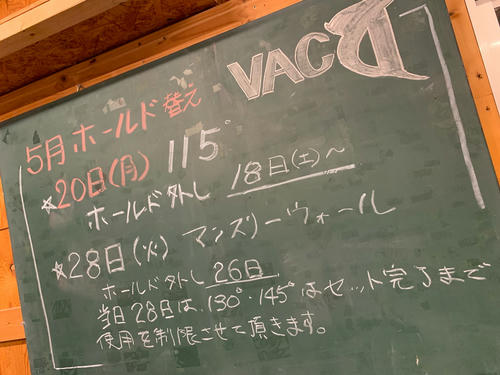 VAC
5月ホールド替え
☆20日(月) 115°
ホールド外し 18日(土)~
☆28日(火) マンスリーウォール
ホールド外し 26日
当日28日は、130°・145°はセット完了まで
使用を制限させて頂きます。